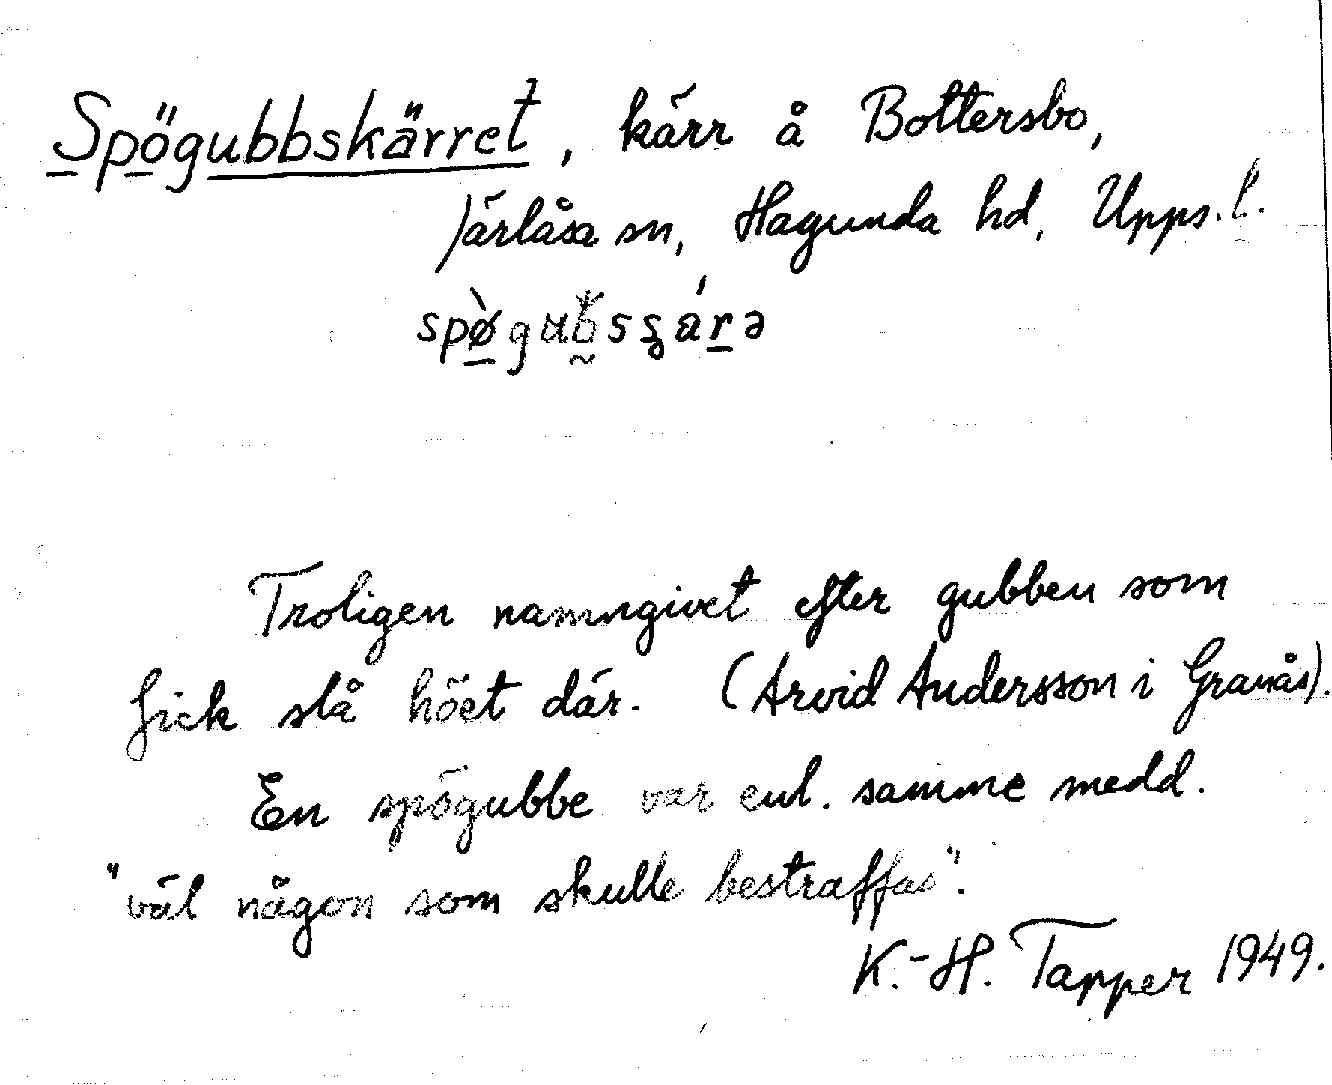 Spögubbskärret, kärr å Bottersbo,
Järlåsa sn, Hagunda hd, Upps. l.
Troligen namngivet efter gubben som
fick slå höet där. (Arvid Andersson i Granås).
En spögubbe var enl. samme medd.
"väl någon som skulle bestraffas".
K.-H. Tapper 1949.